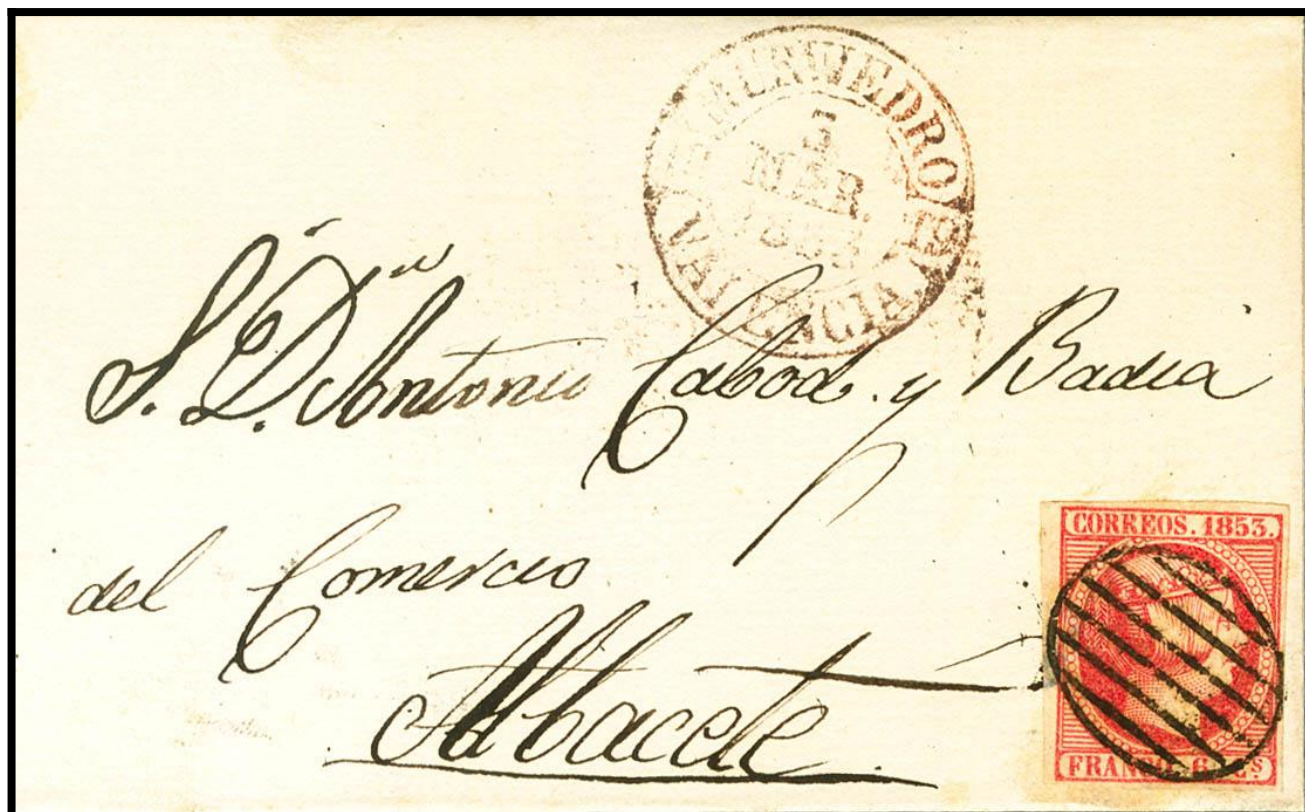 MURVIEDRO
5
MAR.
VALENCIA
S. D.ⁿ Antonio Cabod. y Badia
del Comercio
Albacete
CORREOS. 1853.
FRANCO. 6 Cˢ